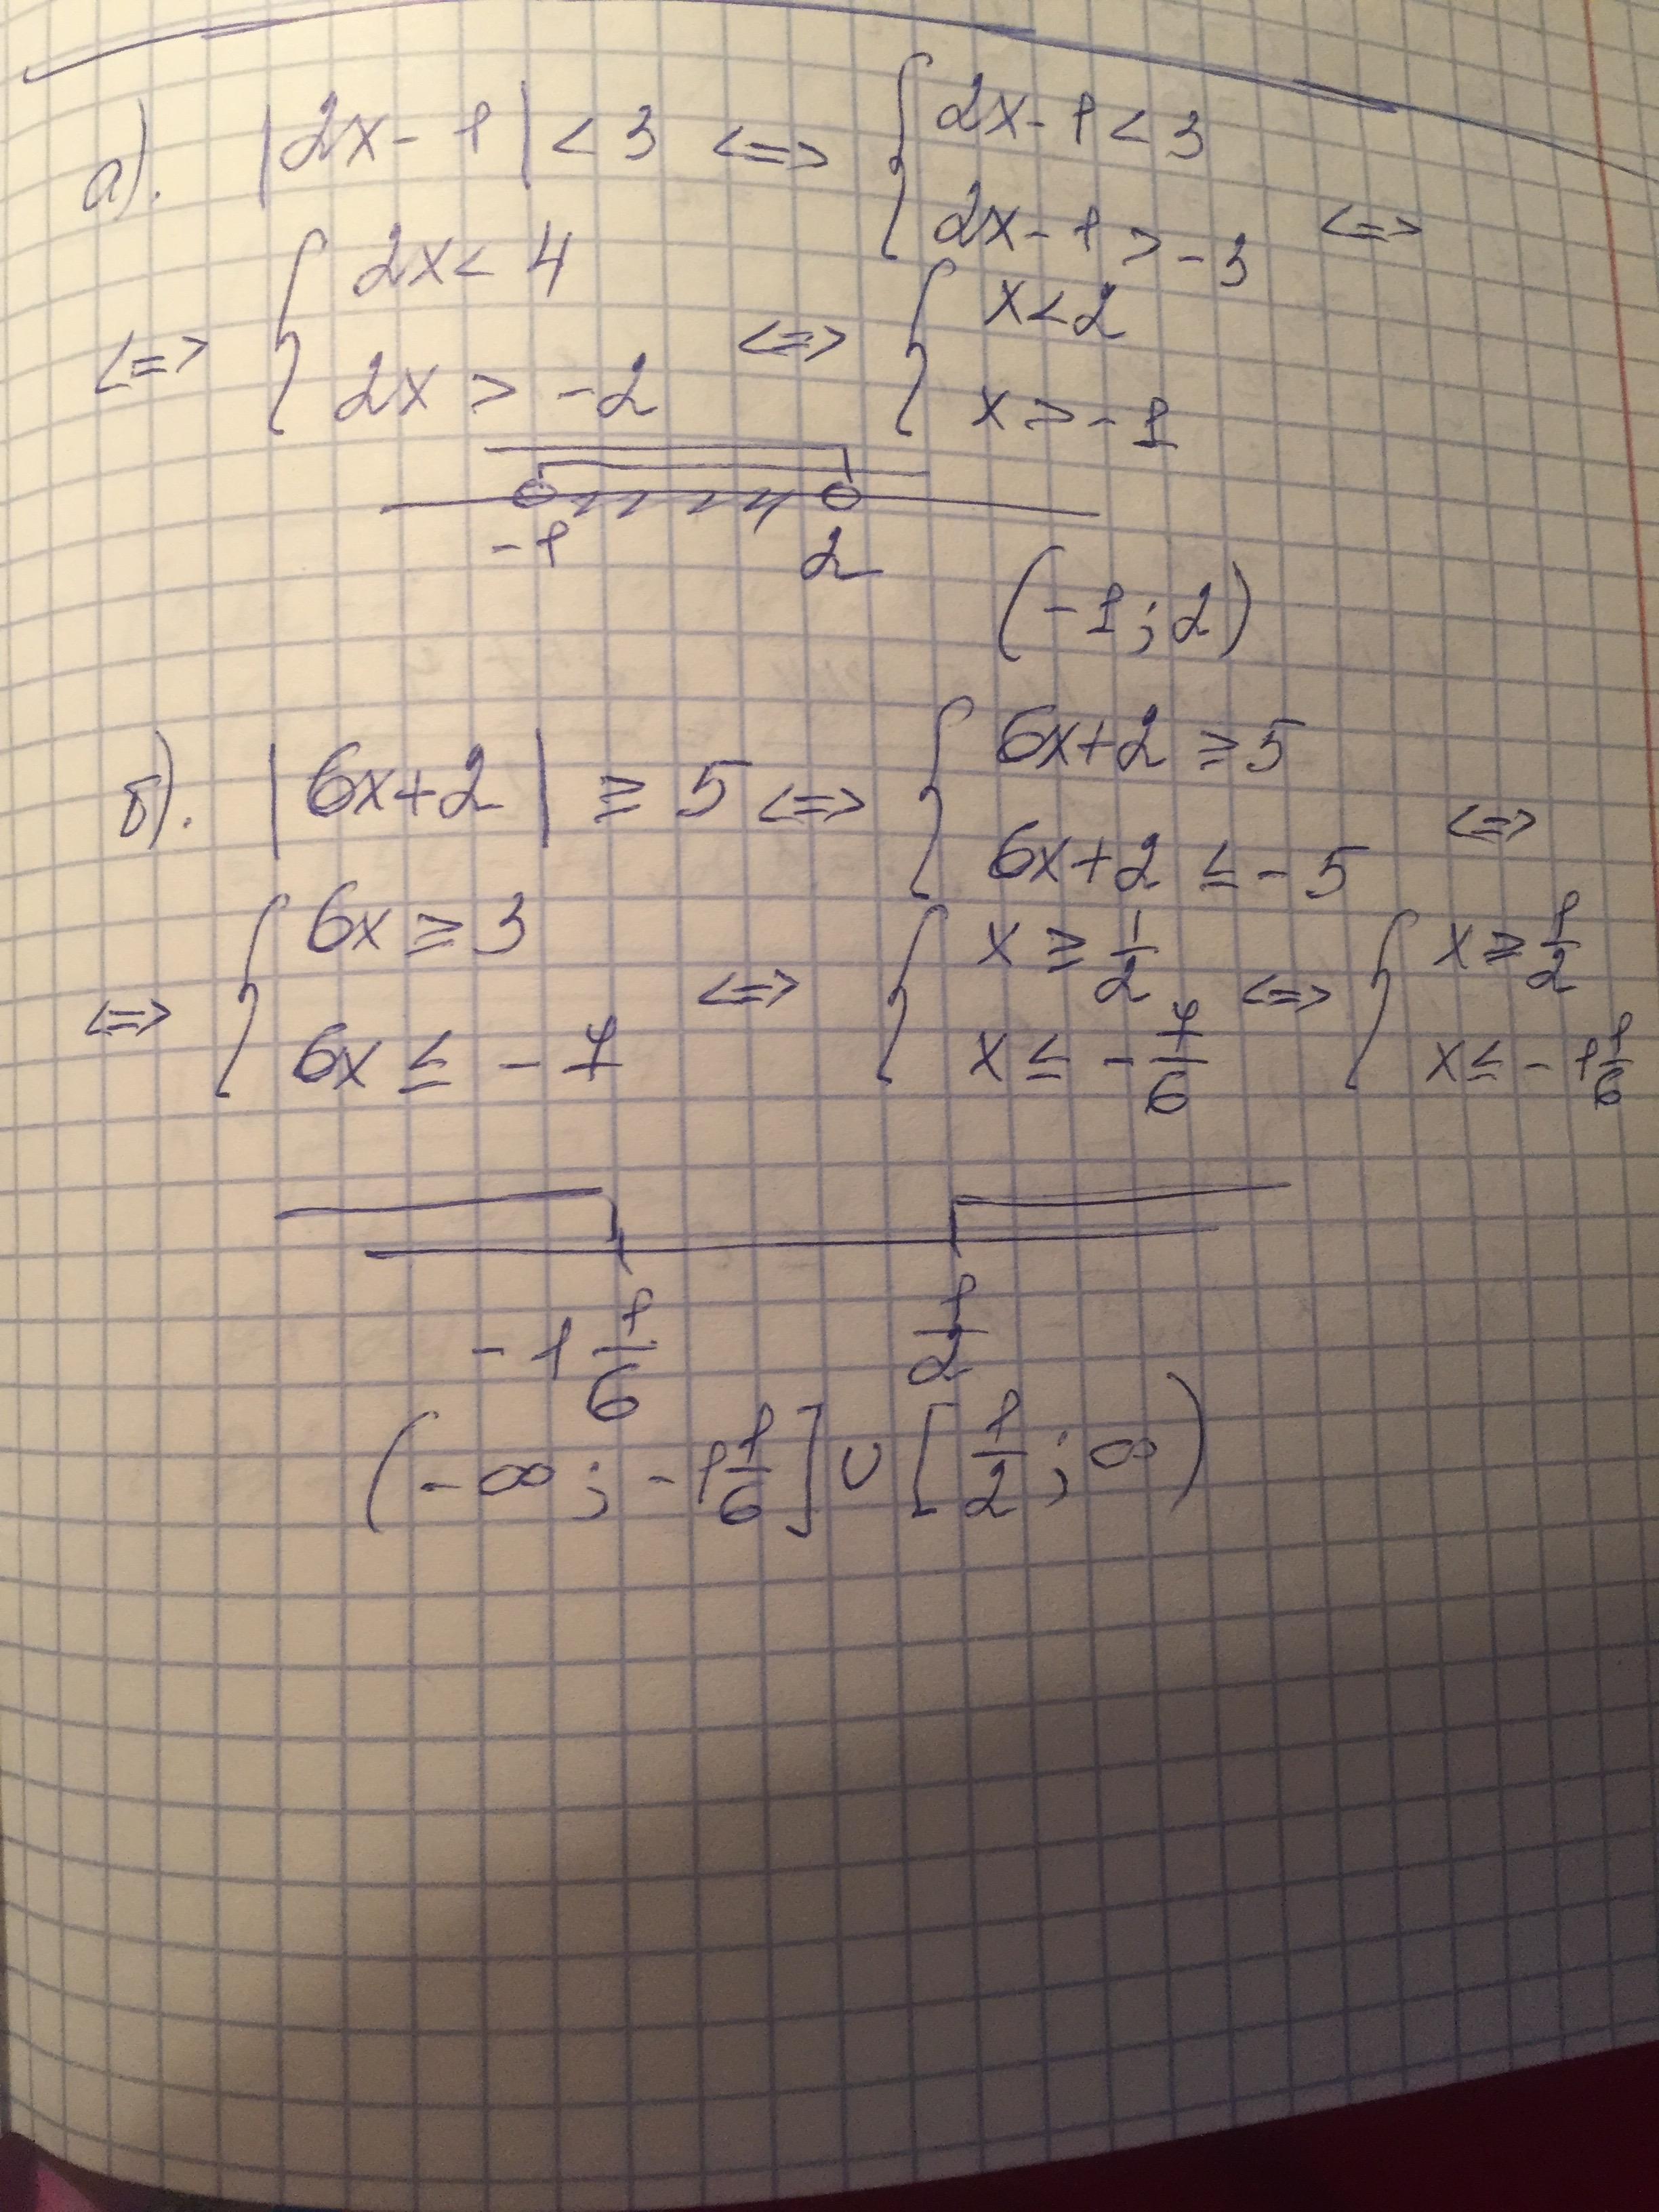 а). |2x-1| < 3 <=> { 2x-1 < 3
2x-1 > -3 <=>
<=> { 2x < 4
2x > -2 <=> { x < 2
x > -1
-1 2
(-1; 2)
б). |6x+2| ≥ 5 <=> { 6x+2 ≥ 5
6x+2 ≤ -5 <=>
<=> { 6x ≥ 3
6x ≤ -7 <=> { x ≥ 1/2
x ≤ -7/6 <=> { x ≥ 1/2
x ≤ -1 1/6
-1 1/6 1/2
(-∞; -1 1/6] ∪ [1/2; ∞)